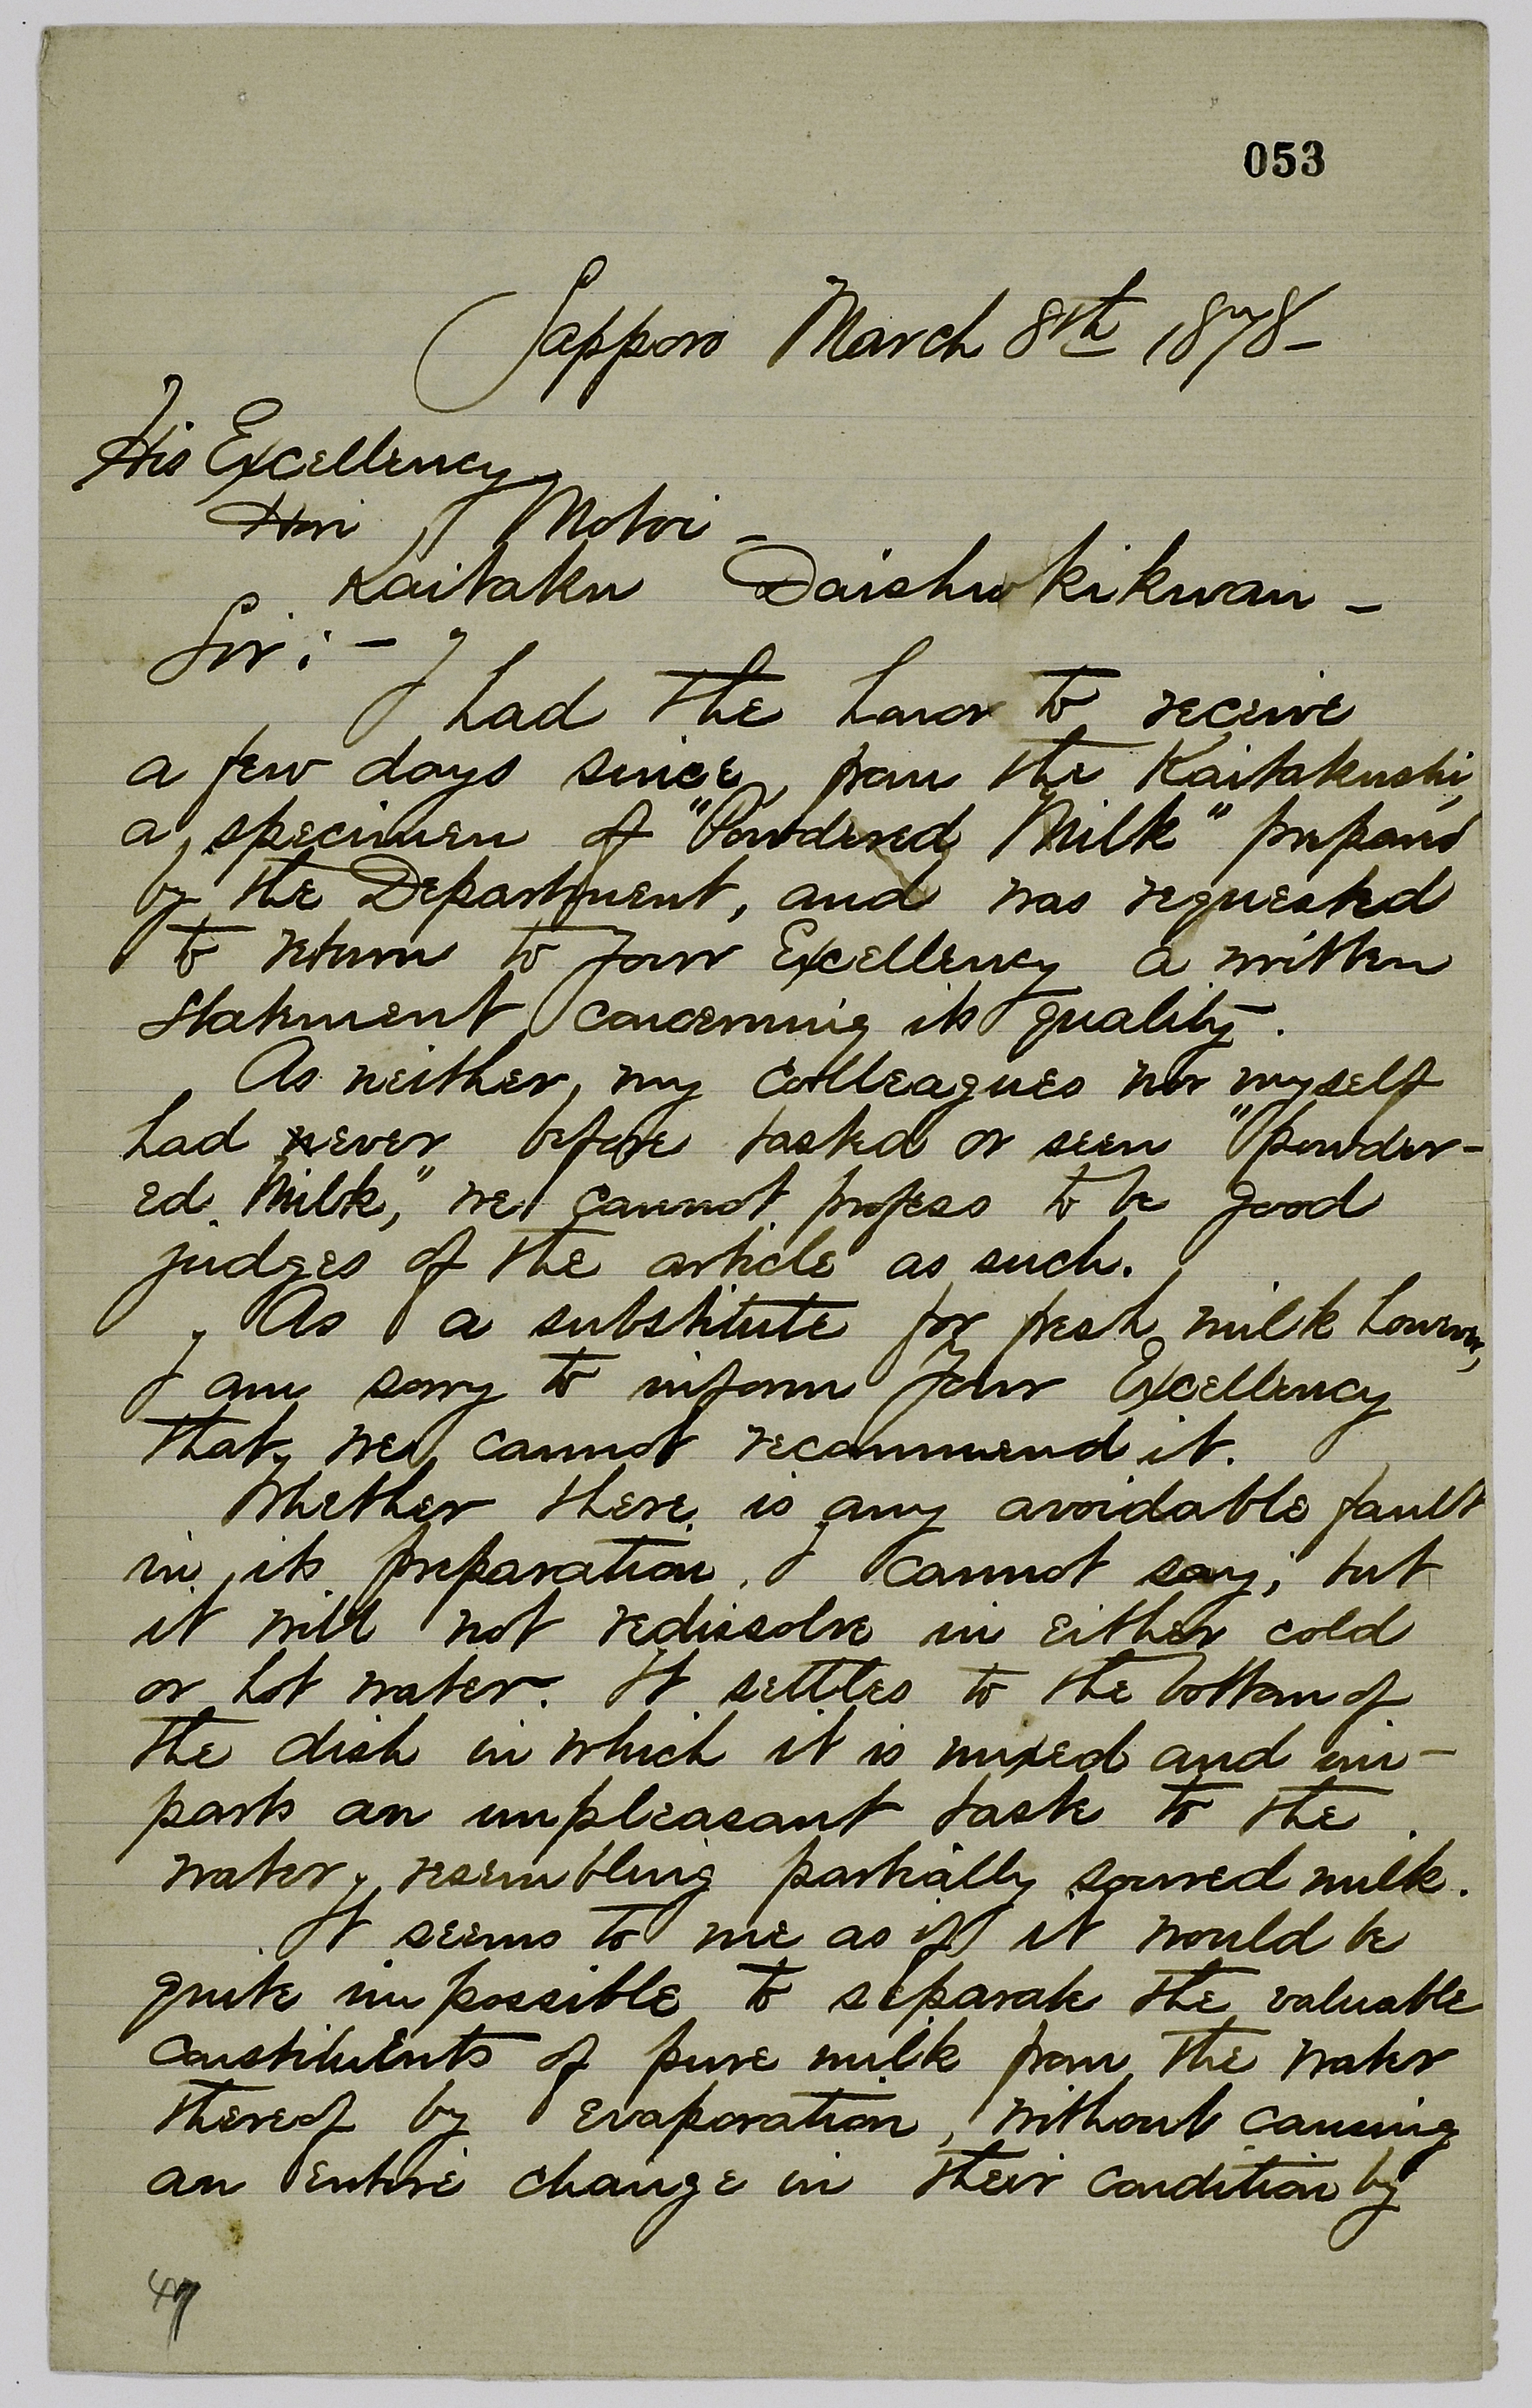 053
Sapporo March 8th 1878-
His Excellency
Hori Motoi -
Kaitaku Daishokikwan -
Sir: -
I had the honor to receive
a few days since, from the Kaitakushi,
a specimen of "Powdered Milk" prepared
by the Department, and was requested
to return to Your Excellency a written
statement concerning its quality.
As neither, my colleagues nor myself
had never before tasted or seen "powder-
ed Milk," we cannot profess to be good
judges of the article as such.
As a substitute for fresh milk however,
I am sorry to inform Your Excellency
that we cannot recommend it.
Whether there is any avoidable fault
in its preparation, I cannot say; but
it will not redissolve in either cold
or hot water. It settles to the bottom of
the dish in which it is mixed and im-
parts an unpleasant taste to the
water, resembling partially soured milk.
It seems to me as if it would be
quite impossible to separate the valuable
constituents of pure milk from the water
thereof by evaporation, without causing
an entire change in their condition by
47